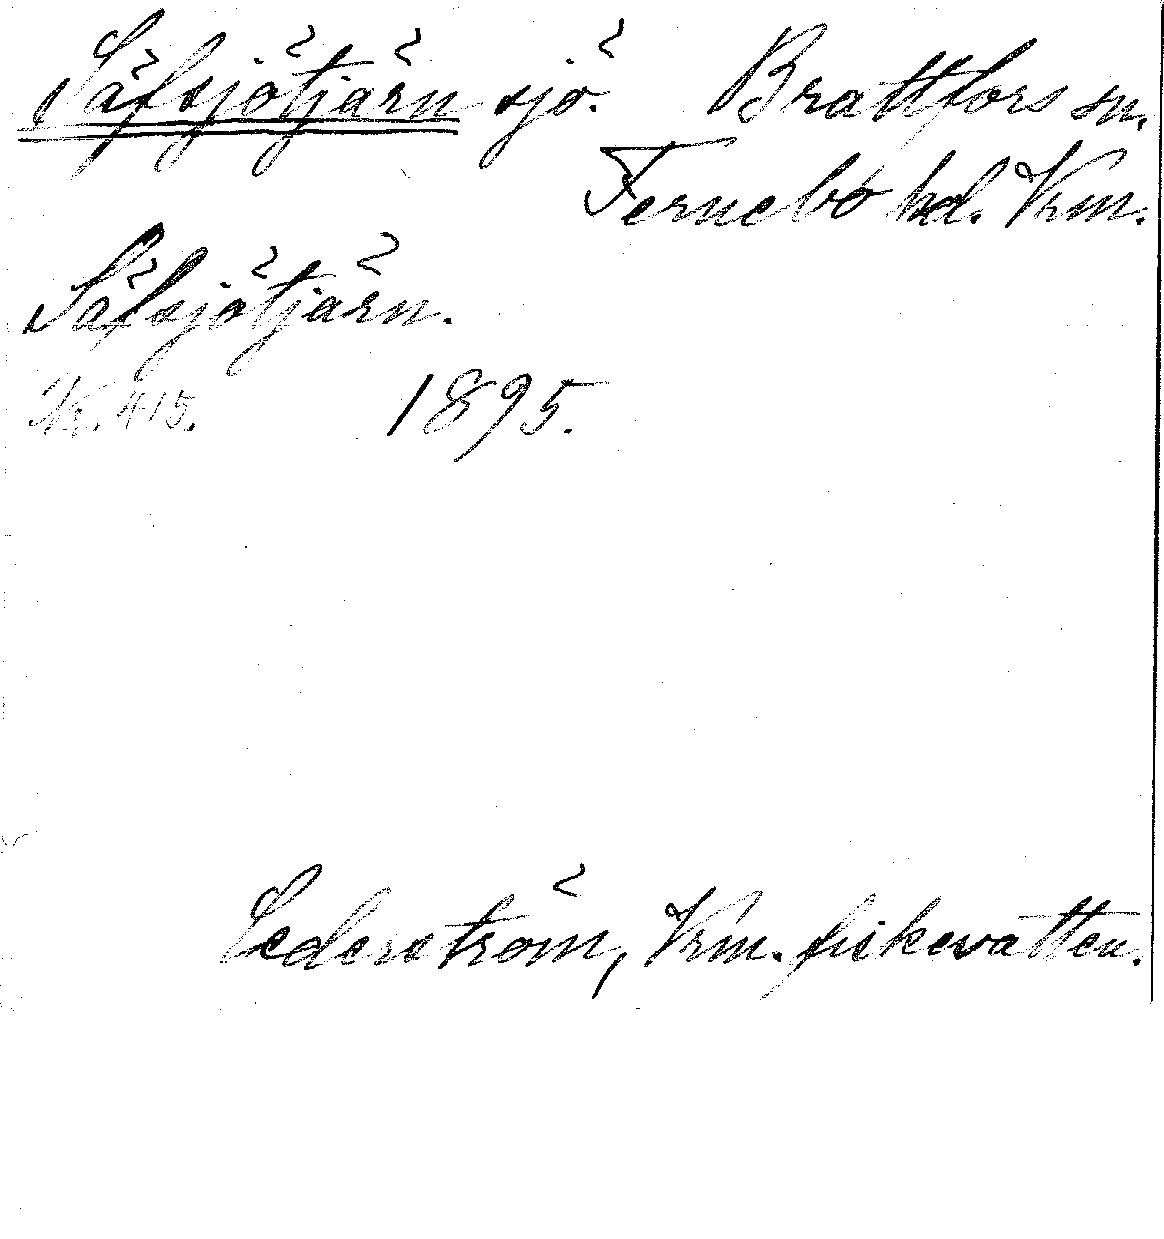 Säfsjötjärn sjö. Brattfors sn.
Fernebo hd. Vrm.
Säfsjötjärn.
Nr. 415. 1895.
Cederström, Vrm. fiskevatten.